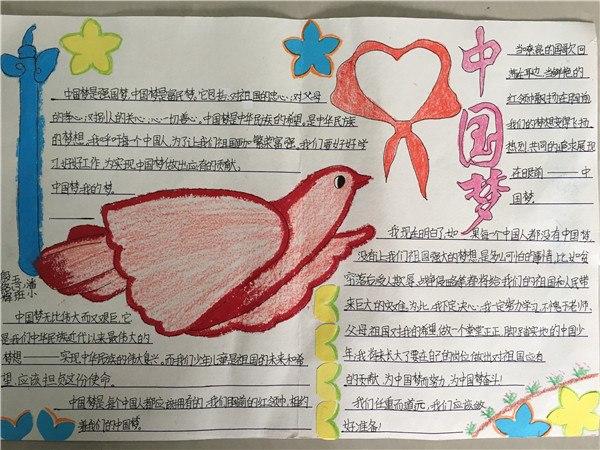 中国梦是强国梦,中国梦是富民梦。它包括:对祖国的忠心;对父母
的孝心;对别人的关心、心一切善心。中国梦是中华民族的希望,是中华民族
的梦想。我呼吁每个中国人,为了让我们祖国更加繁荣富强,我们要好好学
习,好好工作,为实现中国梦做出应有的贡献。
中国梦·我的梦。
五
班
中国梦无比伟大而又艰巨,它
是我们中华民族近代以来最伟大的
梦想——实现中华民族的伟大复兴。而我们少年儿童是祖国的未来和希
望,应该担负这份使命。
中国梦是每个中国人都应该拥有的,我们胸前的红领巾,相约
着我们的中国梦。
中国梦
当嘹亮的国歌回
荡在耳边,当鲜艳的
红领巾飘扬在胸前
我们的梦想变得飞扬
热烈,共同的追求展现
在眼前——中
国梦。
我现在明白了,如果每个中国人都没有中国梦,
没有让我们祖国强大的梦想,是多么可怕的事情;比如贫
穷落后受人欺辱,战争侵略等都将给我们的祖国和人民带
来巨大的灾难。为此,我下定决心:我一定努力学习,不愧下老师、
父母、祖国对我的希望,做一个堂堂正正,脚踏实地的中国少
年。我将来长大了要在自己的岗位做出对祖国应有
的贡献,为中国梦而努力,为中国梦奋斗!
我们任重而道远,我们应该做
好准备!